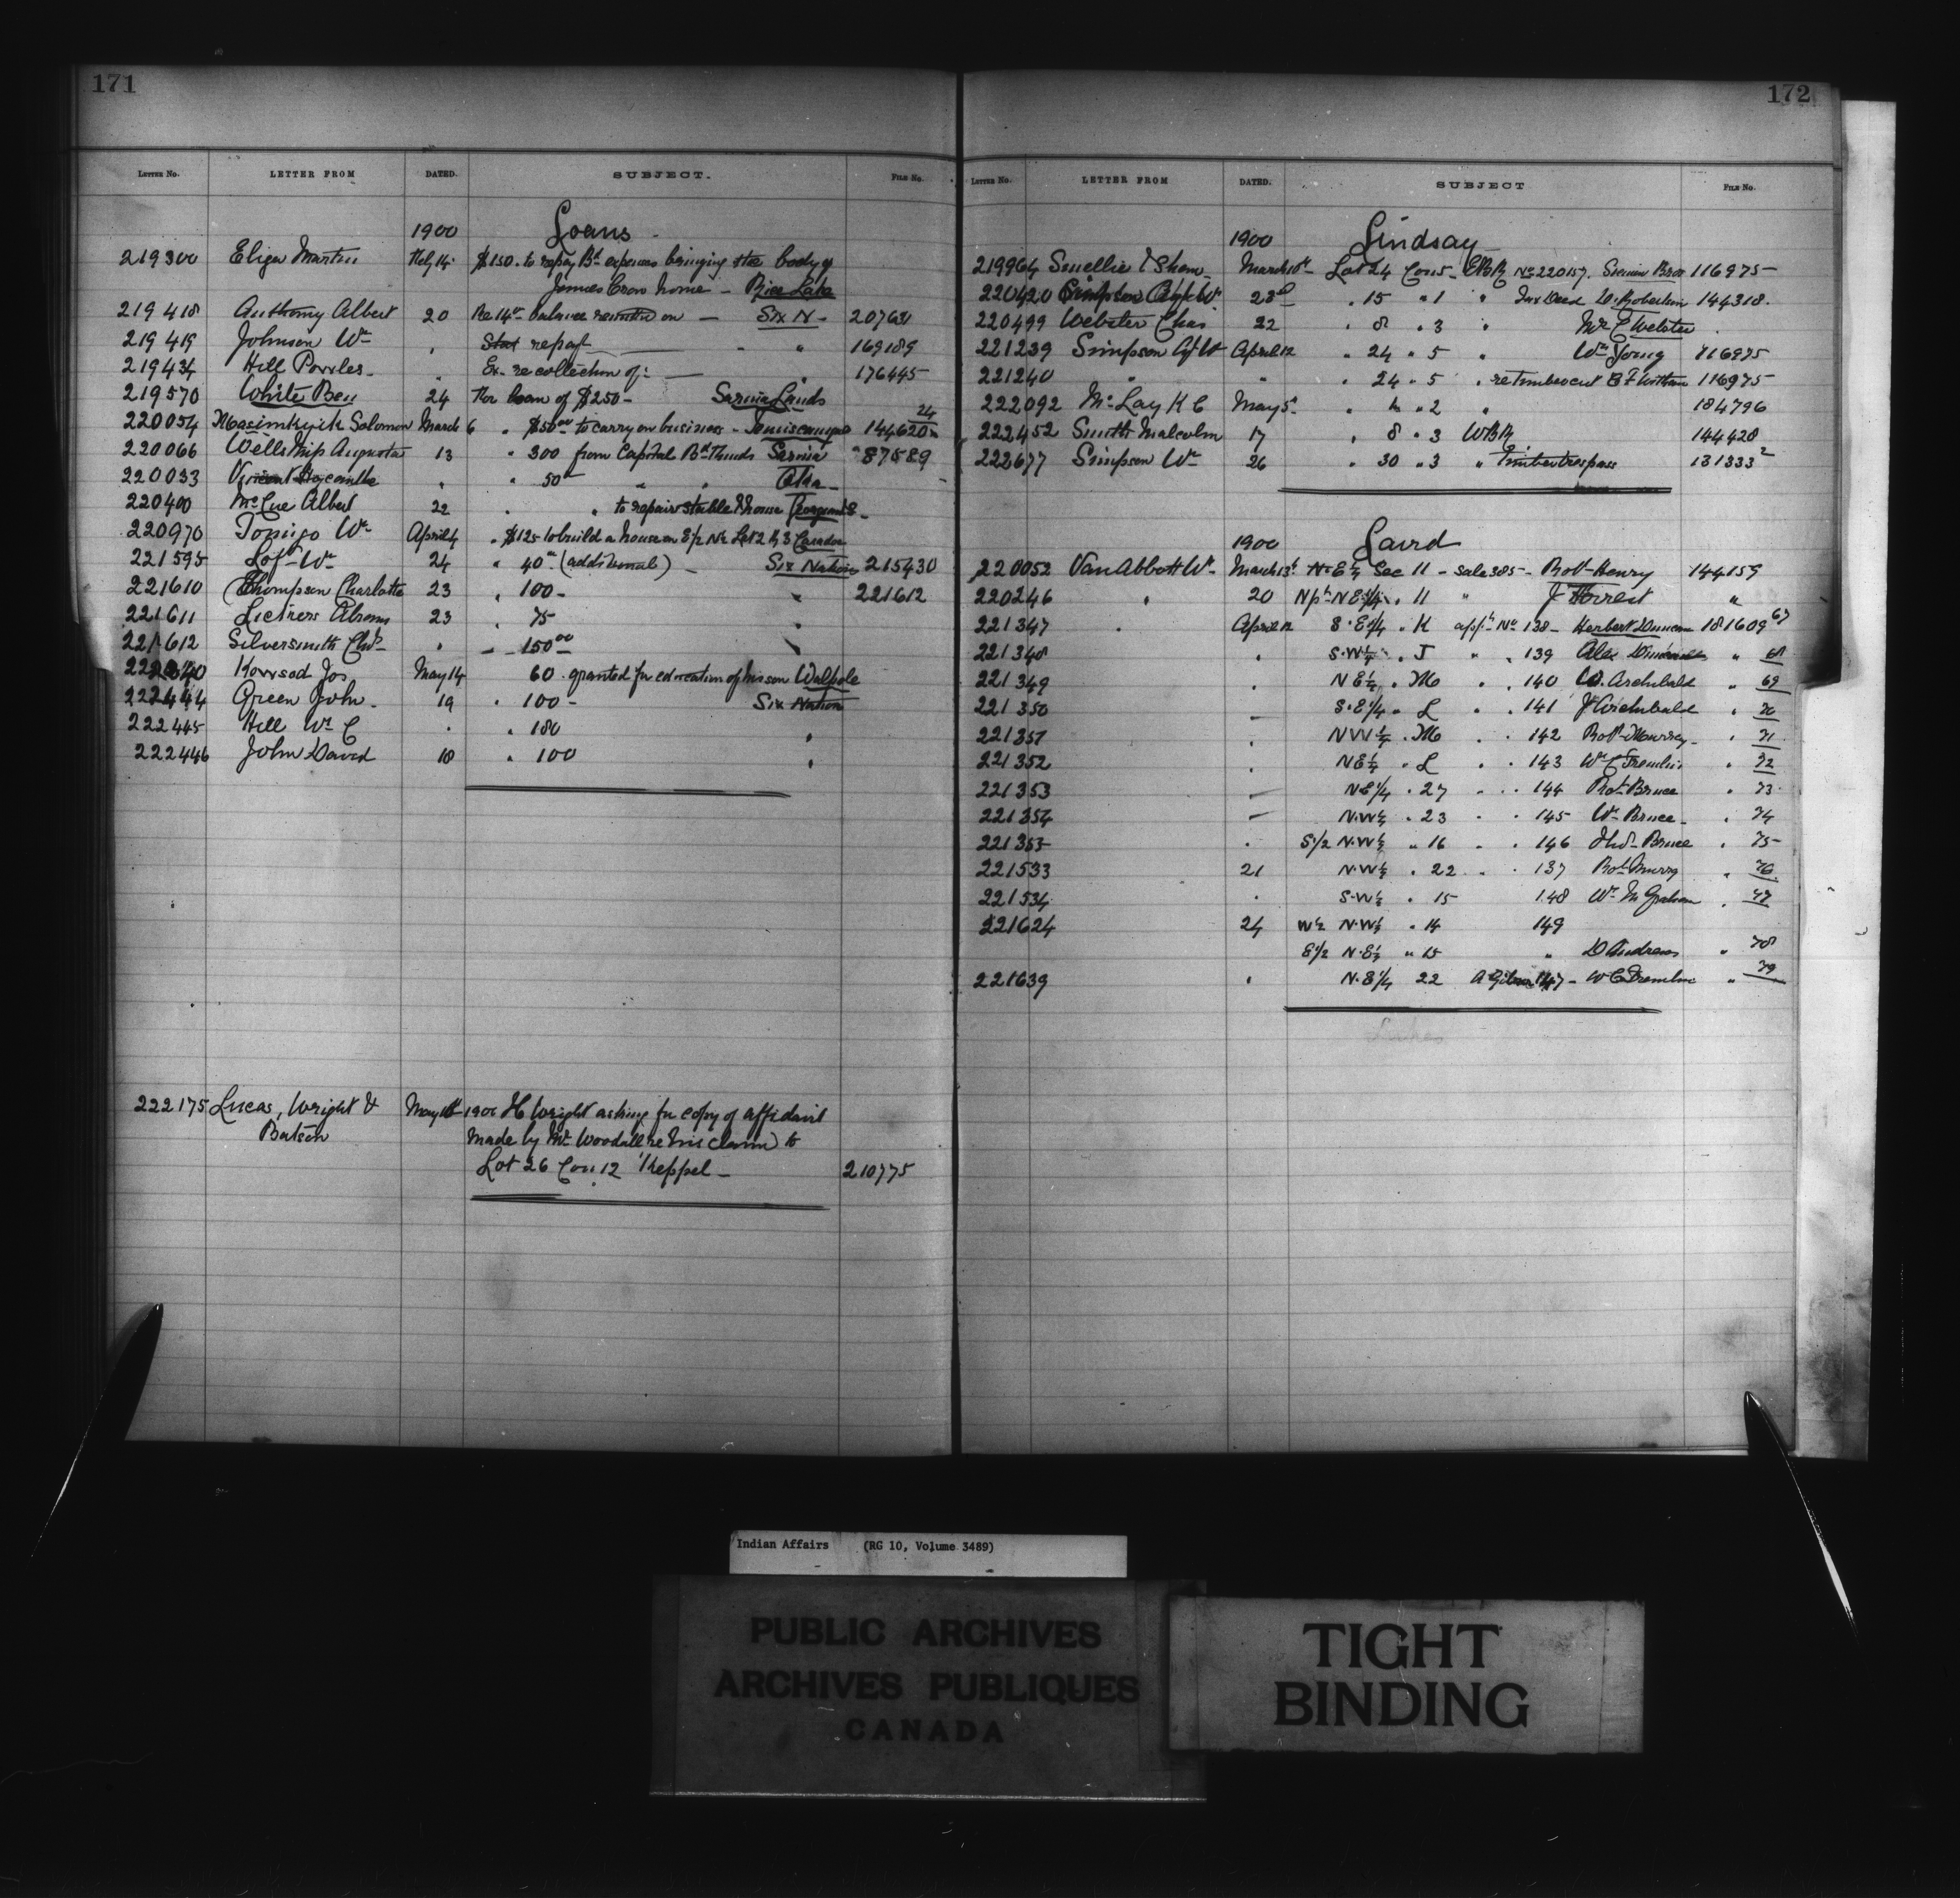 171
LETTER NO. LETTER FROM DATED. SUBJECT. FILE NO.
1900 Loans
219300 Eliza Martin Feby 14 $150. to repay Bd expenses bringing the body of
James Crow home - Rice Lake
219418 Anthony Albert 20 Re 14th balance on - Six N - 207631
219419 Johnson Wm " repaft " 169189
219434 Hill Powles " Ex. re collection of: " 176445
219570 White Ben 24 For loan of $250 - Sarnia Lands
220054 Masimkyik Solomon March 6 " $50.00 to carry on business - Temiscamgue 144620 24
220066 Wells Mrs Augusta 13 " 300 from Capital Bd Funds Sarnia 87589
220033 " " 50 " " Oka
220400 McCue Albert 22 " " to repair stable & house Georgina &
220970 Tomigo Wm April 4 " $125 to build a house on E/2 N1/2 Lot 2 R 3 Caradoc
221595 Loft Wm 24 " 40 (additional) - Six Nations 215430
221610 Thompson Charlotte 23 " 100 - " 221612
221611 Lickers Abram 23 " 75 "
221612 Silversmith Chas " " 150.00 "
222340 Kowsod Jos May 14 60 - granted for education of his son Walpole
222444 Green John 19 " 100 - Six Nation
222445 Hill Wm C " " 180 "
222446 John David 18 " 100 "
222175 Lucas, Wright & May 10th 1900 H Wright asking for copy of affidavit
Batson made by Mr Woodall re his claim to
Lot 26 Con 12 Keppel - 210775
172
LETTER NO. LETTER FROM DATED. SUBJECT FILE NO.
1900 Lindsay
219964 Smellie & Shaw March 10th Lot 24 Con 5 - EBR No 220157. Bros 116975
220420 Simpson W 23d " 15 " 1 " Tax Deed D. Robertson 144318.
220499 Webster Chas 22 " 8 " 3 " Mr C Webster
221239 Simpson W April 12 " 24 " 5 " Wm Young 116975
221240 " " " 24 " 5 " re timber cut 116975
222092 McLay K C May 5 " " 2 " 184796
222452 Smith Malcolm 17 " 8 " 3 WBR 144428
222677 Simpson Wm 26 " 30 " 3 " Timber trespass 131333 2
1900 Laird
220052 Van Abbott W. March 13th N.E 1/4 Sec 11 - Sale 385 - Robt Henry 144159
220246 " 20 Npt N E 1/4 " 11 " J Forrest "
221347 " April 12 S.E 1/4 " K appn No 138 - Herbert Duncan 181609 67
221348 " S.W 1/4 " J " " 139 Alex " 68
221349 " N E 1/4 " M " " 140 W. Archibald " 69
221350 " S.E 1/4 " L " " 141 J Archibald " 70
221351 " NW 1/4 " M " " 142 Robt Murray " 71
221352 " NE 1/4 " L " " 143 Wm C Tremlin " 72
221353 " NE 1/4 " 27 " " 144 Robt Bruce " 73
221354 " N.W 1/4 " 23 " " 145 Wm Bruce " 74
221355 " S 1/2 N.W 1/4 " 16 " " 146 Thos Bruce " 75
221533 21 N.W 1/4 " 22 " " 137 Robt Murry " 76
221534 " S.W 1/4 " 15 148 Wm M Graham " 77
221624 24 W 1/2 N.W 1/4 " 14 149
E 1/2 N.E 1/4 " 15 " D Andrews " 78
221639 " N.E 1/4 22 A Gibson 147 - W C Tremlin " 79
Indian Affairs (RG 10, Volume 3489)
PUBLIC ARCHIVES
ARCHIVES PUBLIQUES
CANADA
TIGHT
BINDING